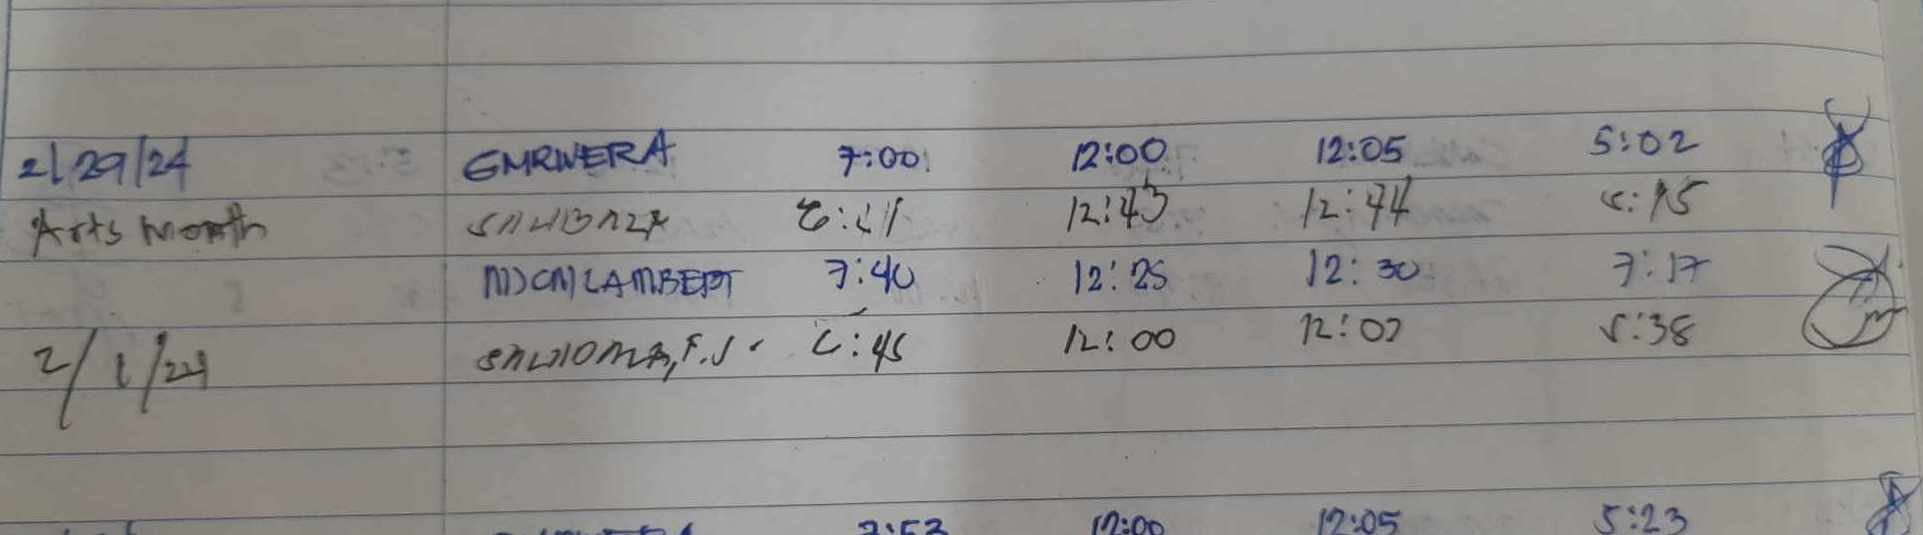 2/29/24 GMRIVERA 7:00 12:00 12:05 5:02
Arts Month 12:43 12:44
MDCMLAMBERT 7:40 12:25 12:30 7:17
2/1/24 F.J. 12:00 12:02 5:38
7:53 12:00 12:05 5:23